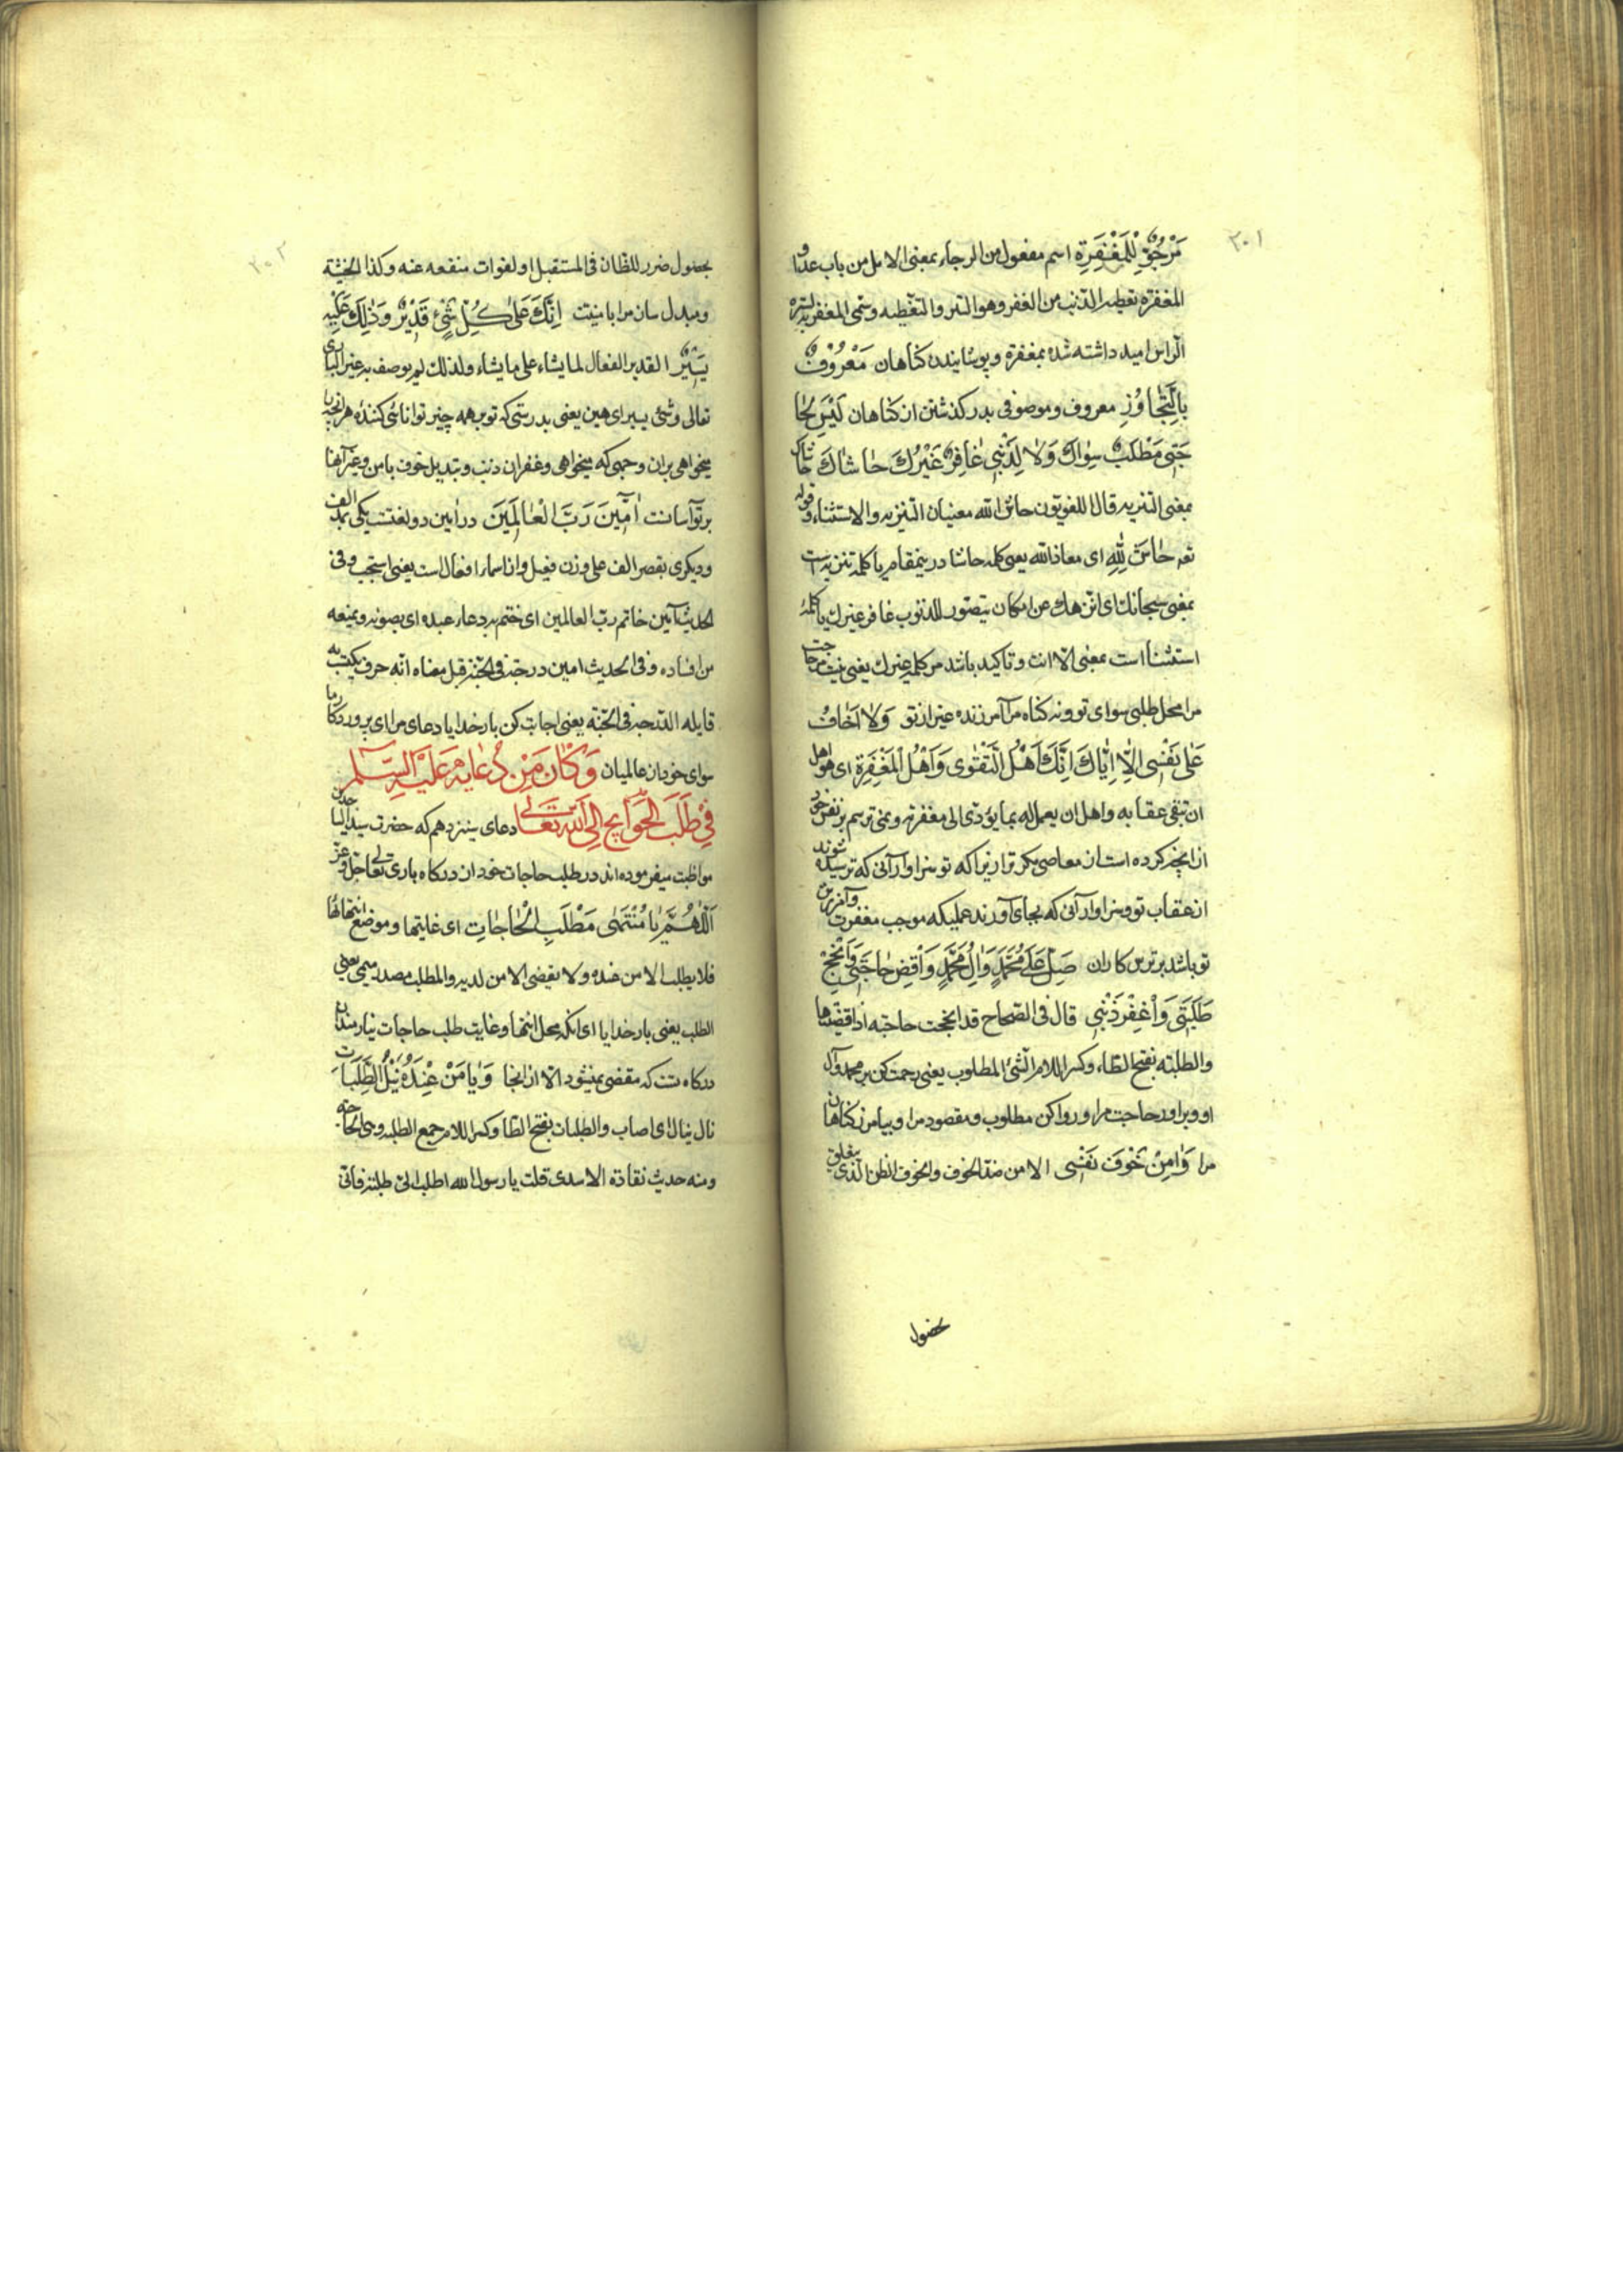 ٣٠١
مَرْجُوٌّ لِلْمَغْفِرَةِ اسم مفعول من الرجاء بمعنی الامل من باب عدا و
المغفرة تغطیه الذنب من الغفر وهو الستر والتغطیه وسمی المغفر به لستره
الراس امید داشته شده بمغفرة و پوشانیدن کناهان مَعْرُوفٌ
بِالتَّجَاوُزِ معروف وموصوفی بدر کذشتن از کناهان لَيْسَ لِحَا
جَتِی مَطْلَبٌ سِوَاكَ وَلَا لِذَنْبِی غَافِرٌ غَيْرُكَ حَاشَاكَ حاشاک
بمعنی التنزیه قال اللغویون حاش الله معنیان التنزیه والاستثناء وقوله
تعه حَاشَ لِلّٰهِ ای معاذ الله یعنی کلمه حاشا در ینمقام یا کلمه تنزیه است
بمعنی سبحانك ای انزهك عن امکان یتصور للذنوب غافر غیرك یا کلمهٔ
استثنا است بمعنی الا انت و تاکید باشد مر کلمه غیرك یعنی نیست مر حاجت
مرا محل طلبی سوای تو ونه کناه مرا امرزنده غیر از تو وَلَا اَخَافُ
عَلٰی نَفْسِی اِلَّا اِيَّاكَ اِنَّكَ اَهْلُ التَّقْوٰی وَاَهْلُ الْمَغْفِرَةِ ای هو اهل
ان تتقی عقابه واهل ان یعمل له بما یؤدی الی مغفرته و نمی ترسم بر نفس خود
از انچه کرده است از معاصی مکر ترا زیرا که تو سزاوار آنی که ترسیده شوند
از عقاب تو وسزاوار آنی که بجای آورند عملیکه موجب مغفرت و آمرزش
تو باشد بر ترس کاران صَلِّ عَلٰی مُحَمَّدٍ وَاٰلِ مُحَمَّدٍ وَاقْضِ حَاجَتِی وَاَنْجِحْ
طَلِبَتِی وَاغْفِرْ ذَنْبِی قال فی الصحاح قد انجحت حاجته اذا قضیتها
والطلبته بفتح الطاء وکسر اللام الشئ المطلوب یعنی رحمت کن بر محمد وآل
او وبر اور حاجت مرا و روا کن مطلوب و مقصود مرا و بیامرز کناهان
مرا وَاٰمِنْ خَوْفَ نَفْسِی الامن ضد الخوف والخوف الظن الذی یتعلق
بحضول
٣٠٢
بحصول ضرر للظان فی المستقبل او لفوات منفعه عنه وکذا الخشیة
ومبدل سان مرا بامنیت اِنَّكَ عَلٰی كُلِّ شَیْءٍ قَدِيرٌ وَذٰلِكَ عَلَيْكَ
يَسِيرٌ القدیر الفعال لما یشاء علی ما یشاء ولذلك لم یوصف به غیر الباری
تعالی وشئ یسیر ای هین یعنی بدرستی که تو بر همه چیز توانائی کننده هر انچه را
میخواهی بران وجهی که میخواهی وغفران ذنب و تبدیل خوف بامن وغیر آنها
بر تو آسانست اٰمِينَ رَبَّ الْعَالَمِينَ در امین دو لغتست یکی بمد الف
ودیکری بقصر الف علی وزن فعیل وان اسما را فعال است یعنی استجب وفی
الحدیث آمین خاتم رب العالمین ای ختم به دعاء عبده ای یصونه ویمنعه
من افساده وفی الحدیث امین درجة فی الجنة قیل معناه انه حرف یکتسب به
قایله الدرجه فی الجنة یعنی اجابت کن بار خدایا دعای مرا ای پروردکار ما
سوای خود از عالمیان وَكَانَ مِنْ دُعَائِهِ عَلَيْهِ السَّلَم
فِی طَلَبِ الْحَوَائِجِ اِلَی اللهِ تَعَالٰی دعای سیزدهم که حضرت سید الساجدین
مواظبت میفرموده اند در طلب حاجات خود از درکاه باری تعالی جل وعز
اَللّٰهُمَّ يَا مُنْتَهٰی مَطْلَبِ الْحَاجَاتِ ای غایتها وموضع انتهائها
فلا یطلب الا من عنده ولا یقضی الا من لدیه والمطلب مصدر میمی بمعنی
الطلب یعنی بار خدایا ای انکه محل انتها وغایت طلب حاجات نیازمندان
درکاه تست که مقضی نمیشود الا از انجا وَيَا مَنْ عِنْدَهُ نَيْلُ الطَّلِبَاتِ
نال ینال ای اصاب والطلبات بفتح الطا وکسر اللام جمع الطلبه وهی الحاجته
ومنه حدیث نقادة الاسدی قلت یا رسول الله اطلب الی طلبة فانی